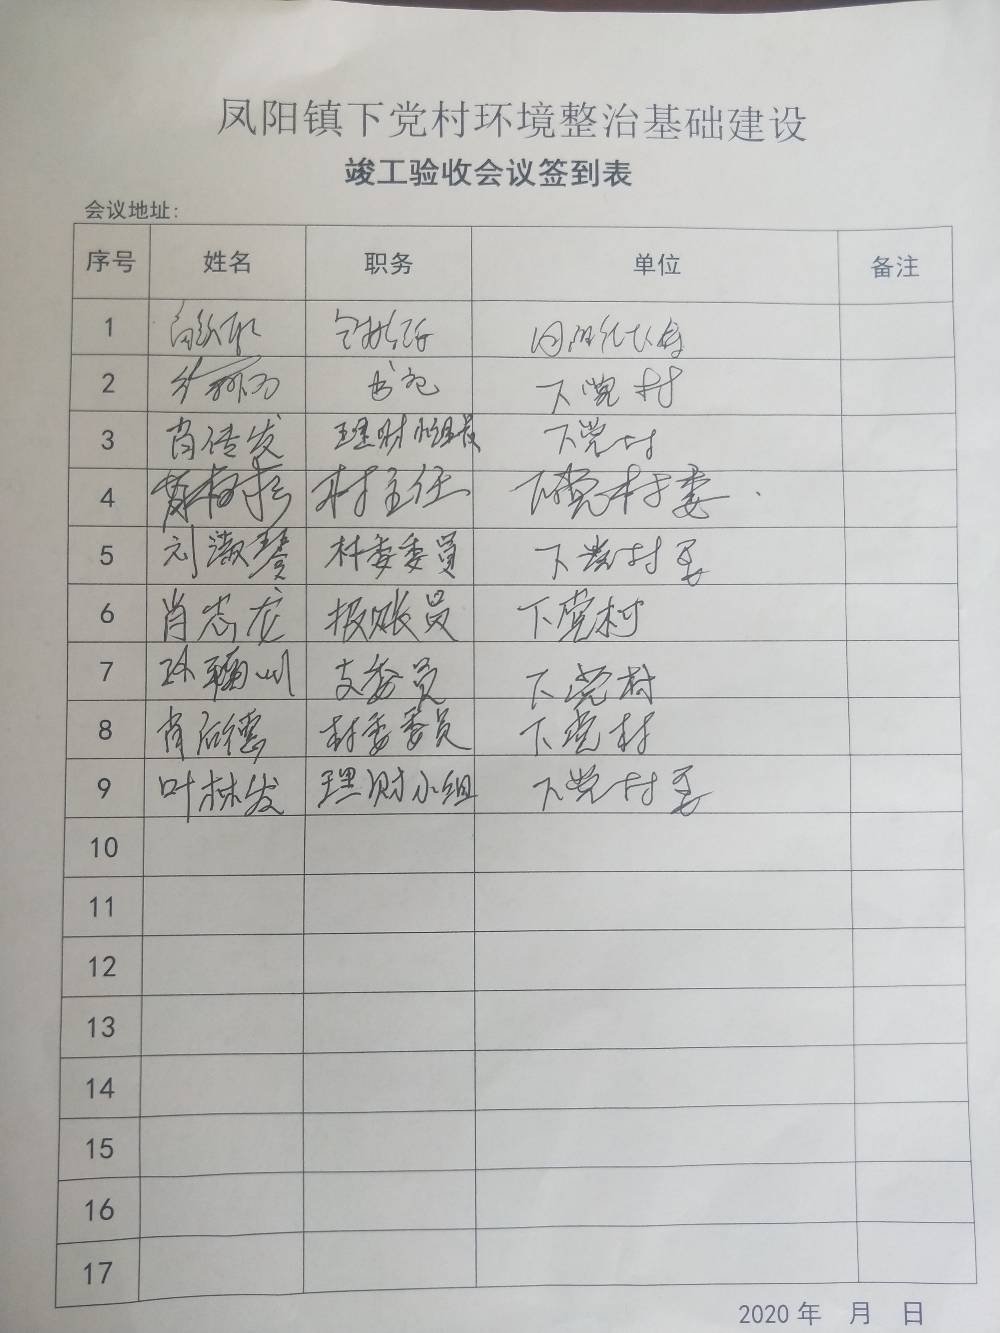 凤阳镇下党村环境整治基础建设
竣工验收会议签到表
会议地址:
序号 姓名 职务 单位 备注
1
2 书记 下党村
3 肖传发 理财小组长 下党村
4 村主任 下党村委
5 刘淑琴 村委委员 下党村委
6 肖志龙 报账员 下党村
7 支委员 下党村
8 肖 德 村委委员 下党村
9 叶林发 理财小组 下党村委
10
11
12
13
14
15
16
17
2020年 月 日